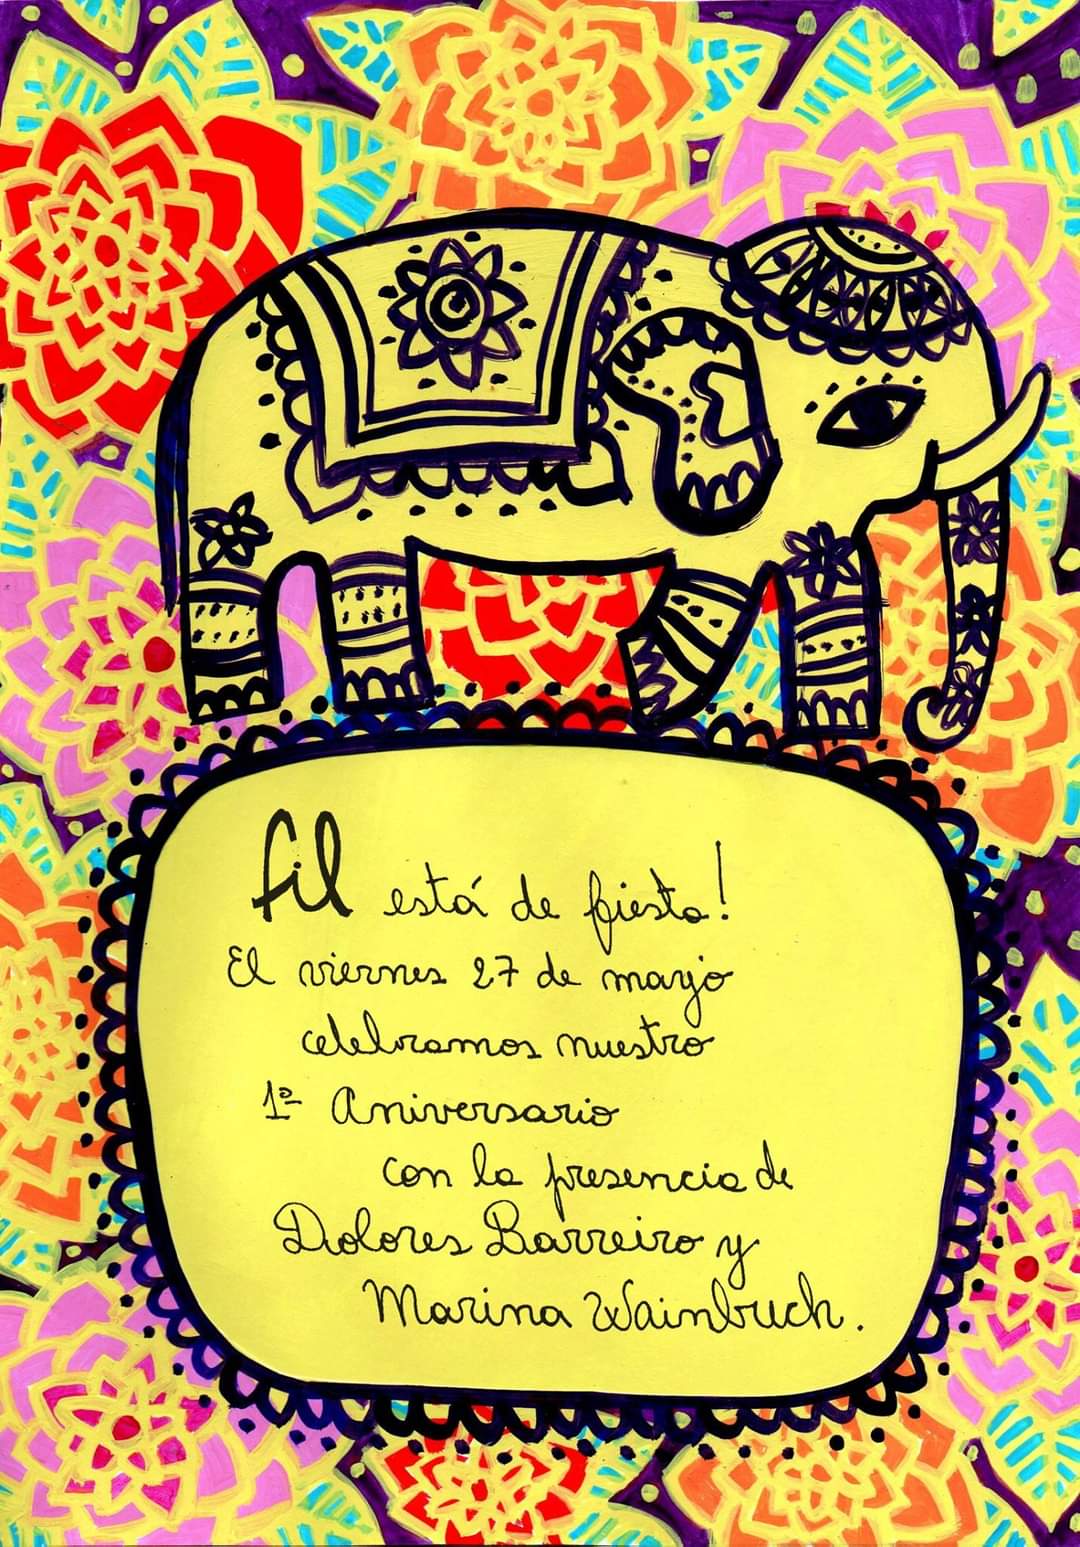 fil está de fiesta!
El viernes 27 de mayo
celebramos nuestro
1º Aniversario
con la presencia de
Dolores Barreiro y
Marina Wainbruch.